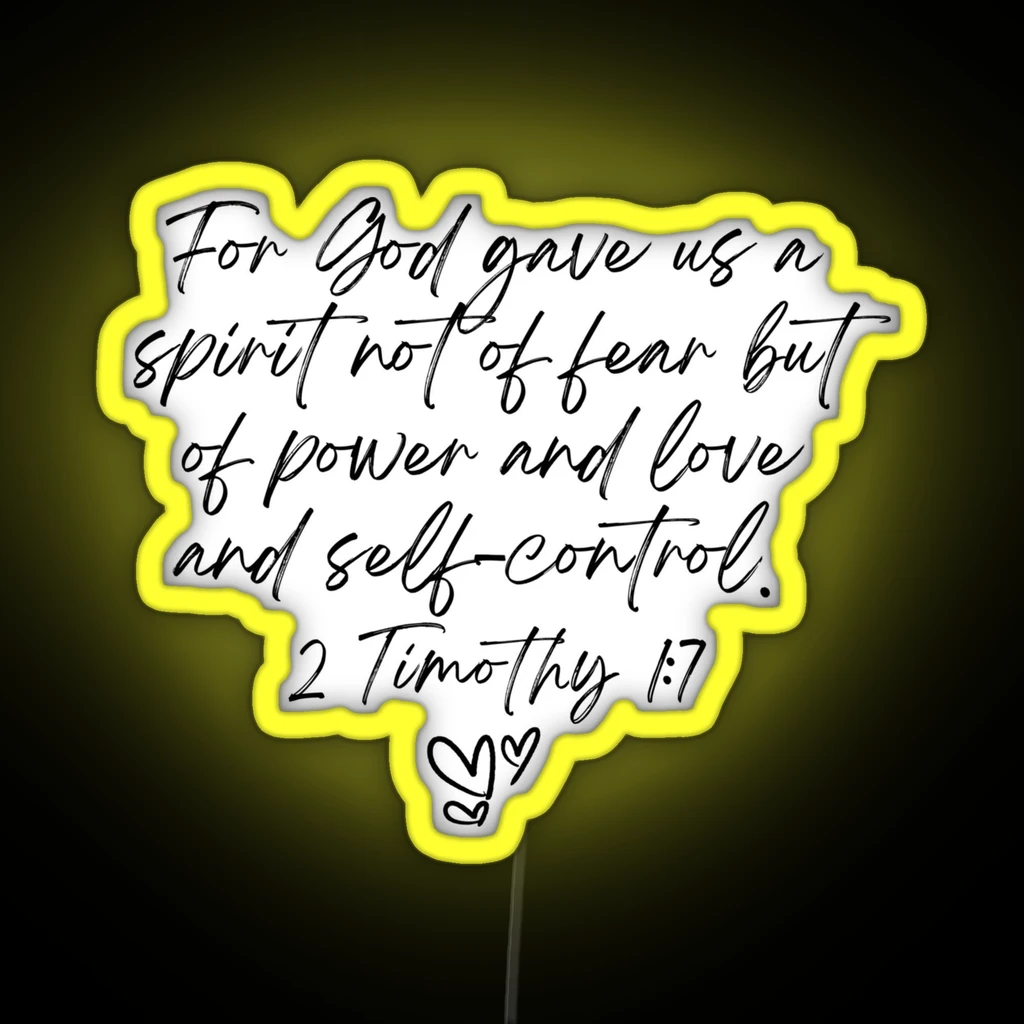 For God gave us a
spirit not of fear but
of power and love
and self-control.
2 Timothy 1:7